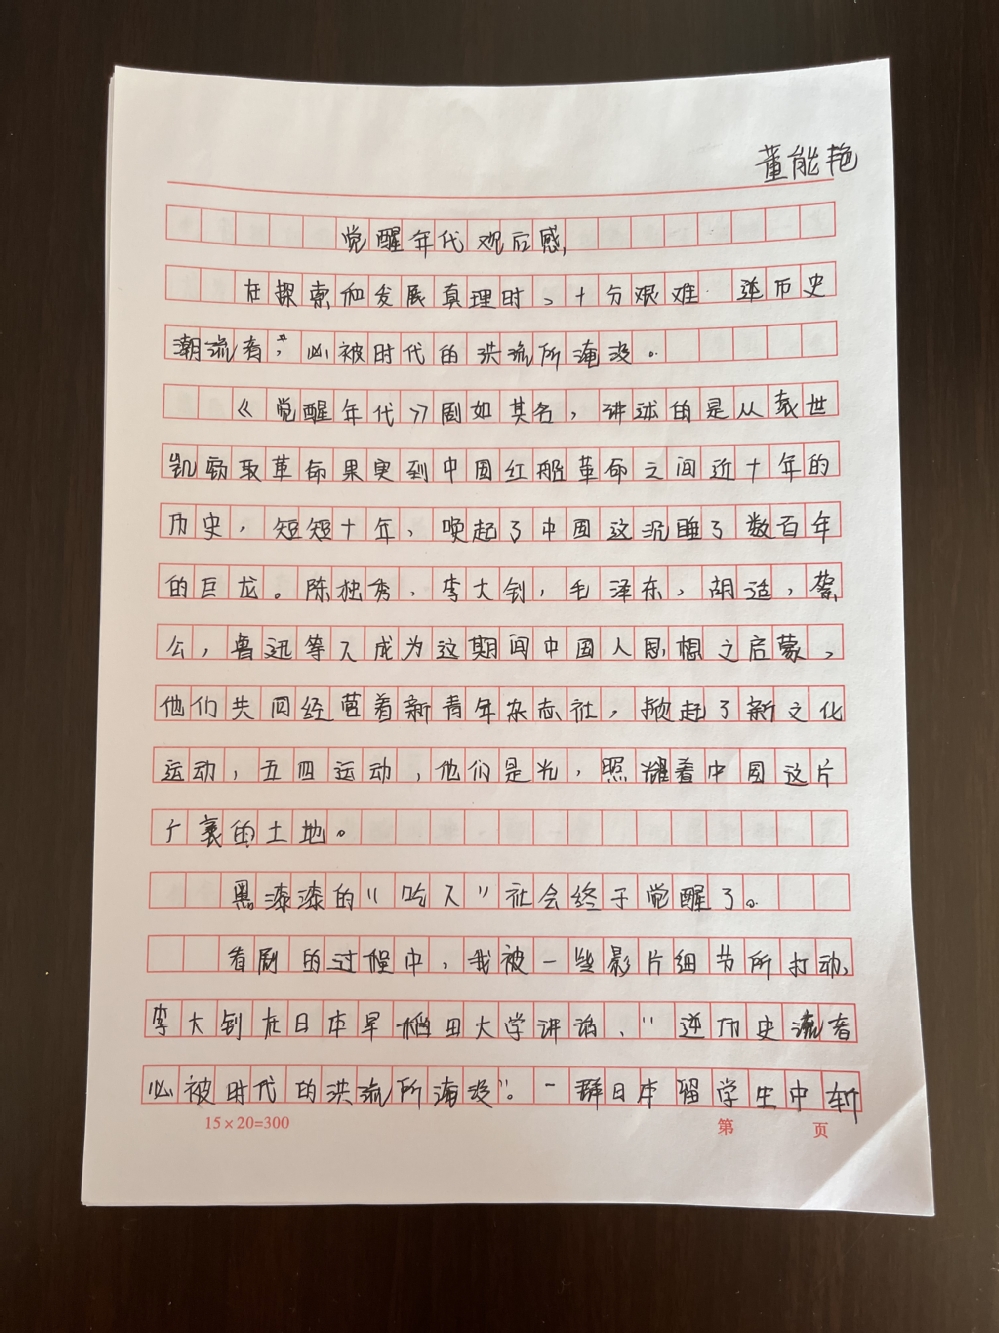 董能艳
觉醒年代观后感
在探索和发展真理时、十分艰难 逆历史
潮流者，必被时代的洪流所淹没。
《觉醒年代》剧如其名，讲述的是从袁世
凯窃取革命果实到中国红船革命之间近十年的
历史，短短十年，唤起了中国这沉睡了数百年
的巨龙。陈独秀，李大钊，毛泽东，胡适，蔡
公，鲁迅等人成为这期间中国人思想之启蒙，
他们共同经营着新青年杂志社，掀起了新文化
运动，五四运动，他们是光，照耀着中国这片
广袤的土地。
黑漆漆的“吃人”社会终于觉醒了。
看剧的过程中，我被一些影片细节所打动，
李大钊在日本早稻田大学讲话、“逆历史流者
必被时代的洪流所淹没”。一群日本留学生中斩
15×20=300
第 页